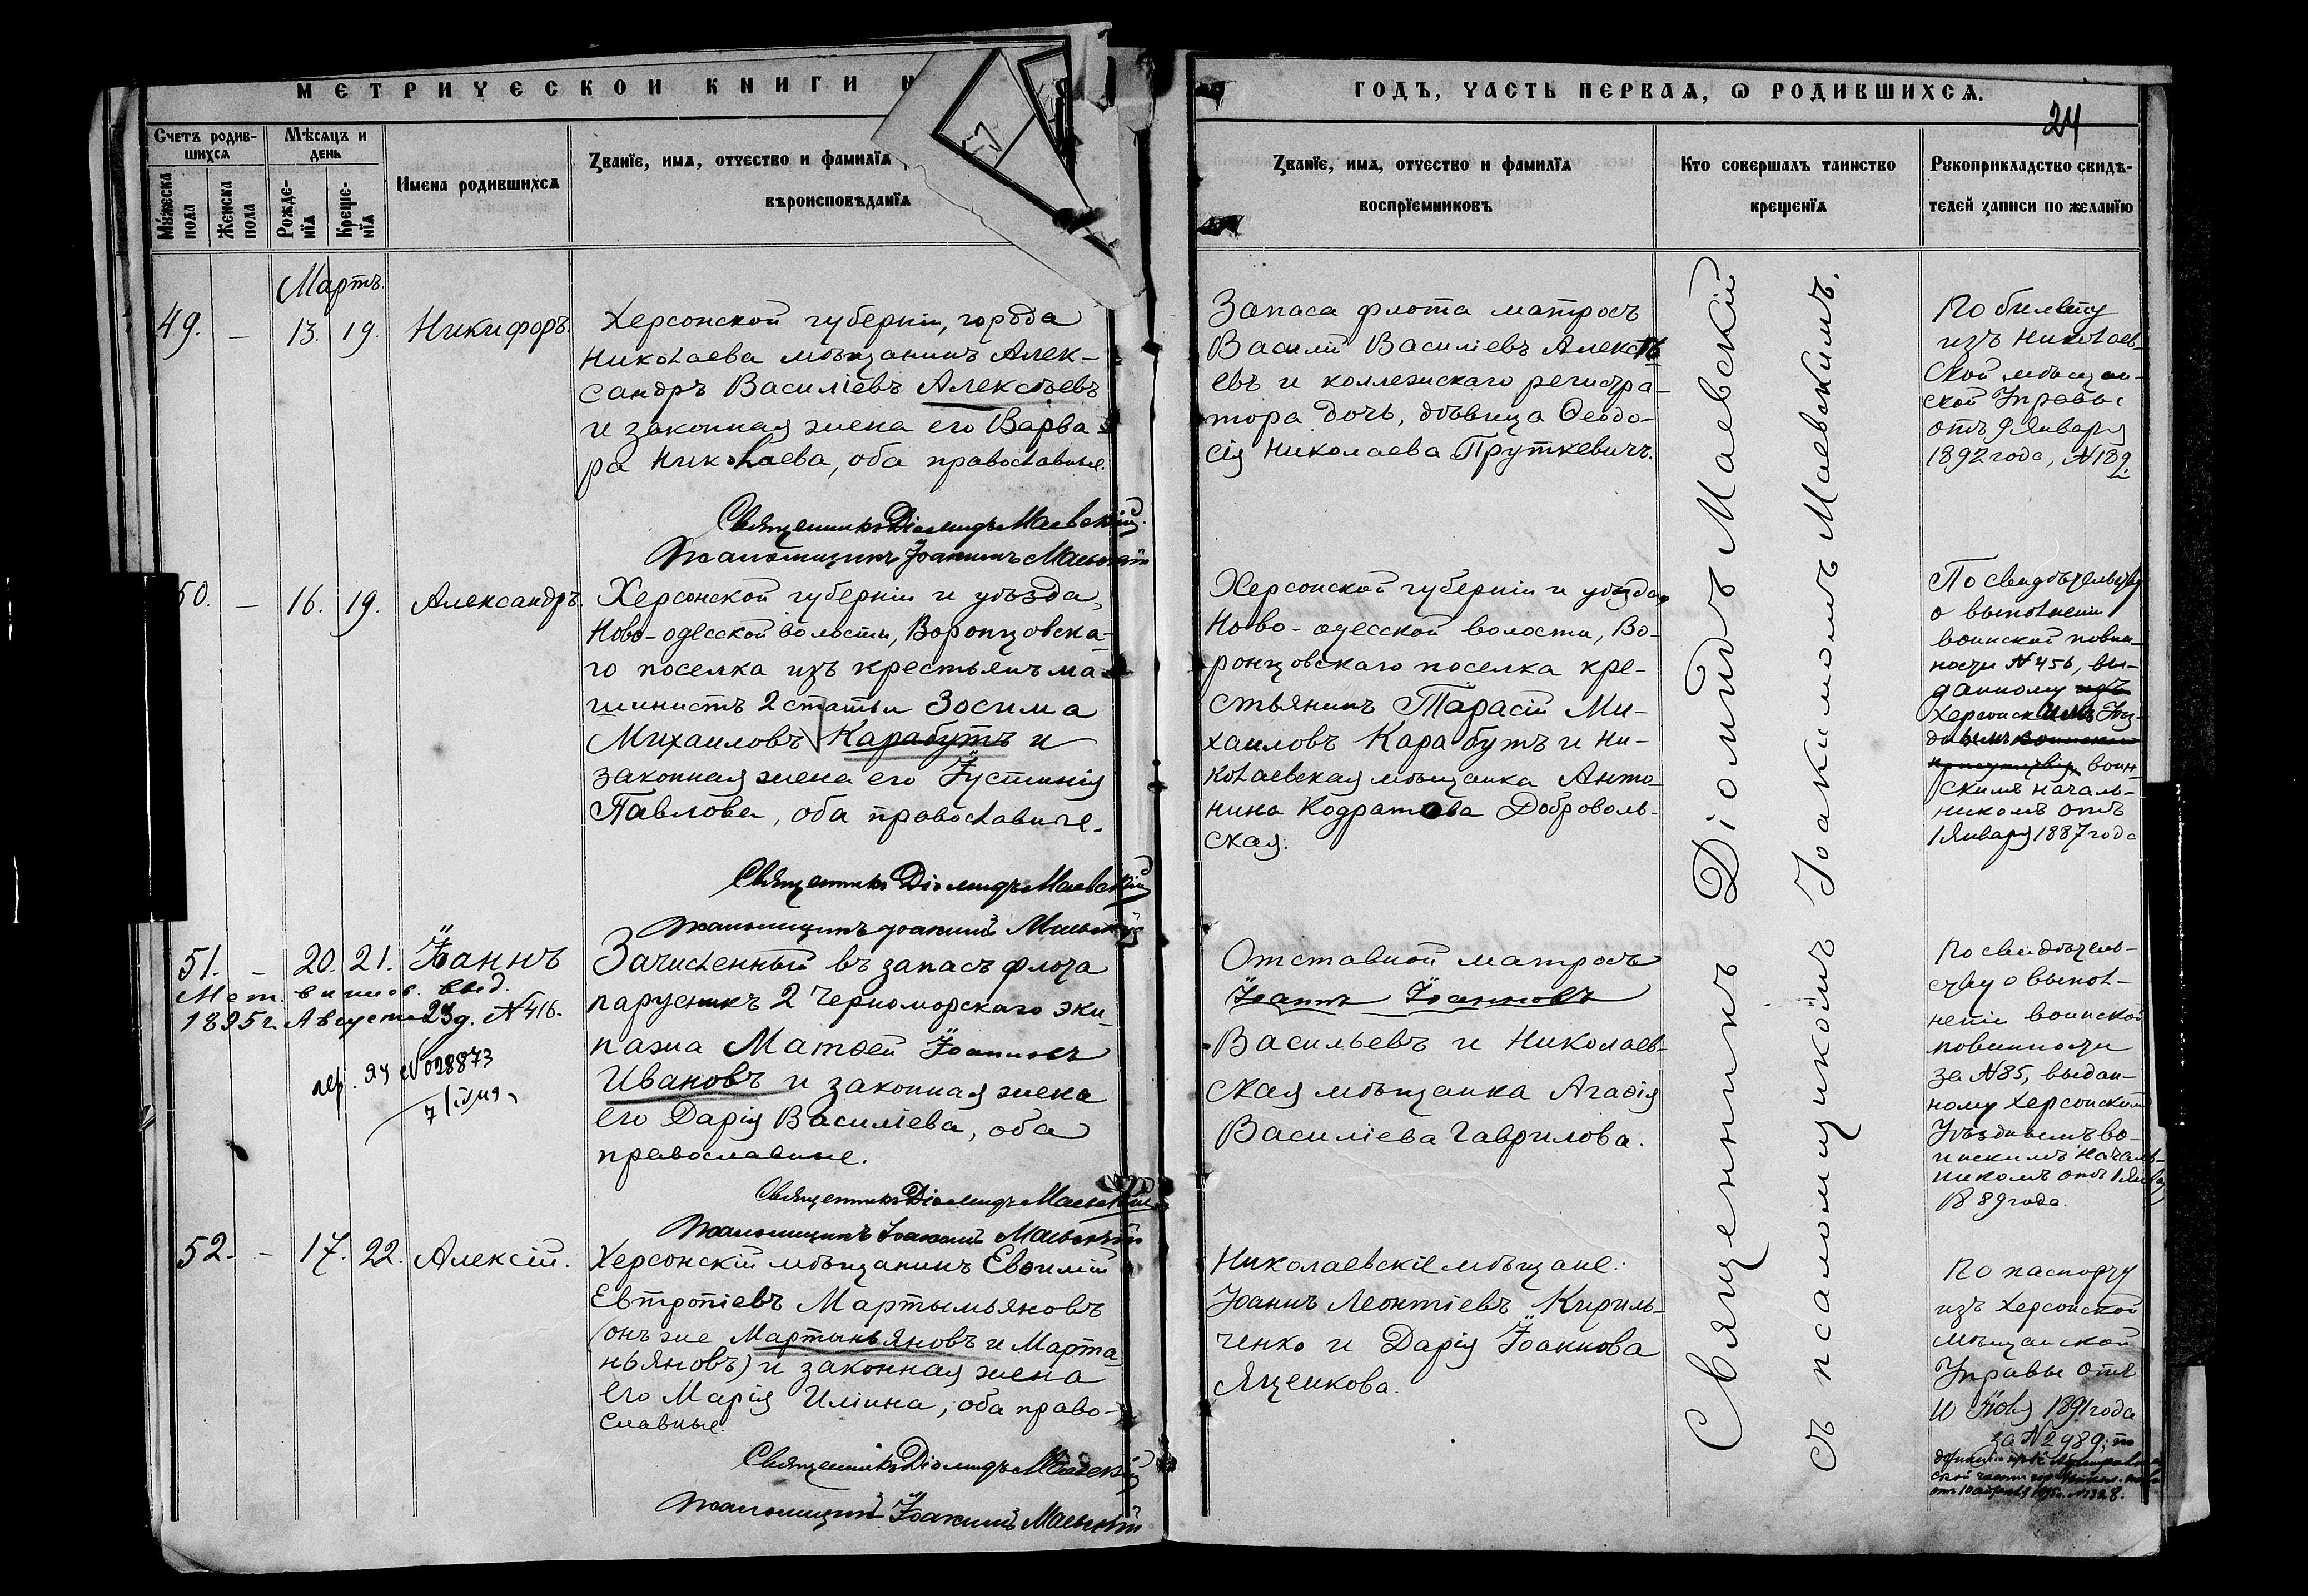 МЕТРИЧЕСКОЙ КНИГИ
ГОДЪ, ЧАСТЬ ПЕРВАЯ, Ѡ РОДИВШИХСЯ.
24
Счетъ родив-
шихся
Мѣсяцъ и
день
Мужеска
пола
Женска
пола
Рожде-
нїя
Креще-
нїя
Имена родившихся
Званїе, имя, отчество и фамилїя
вѣроисповѣданїя
Званїе, имя, отчество и фамилїя
воспрїемниковъ
Кто совершалъ таинство
крещенїя
Рукоприкладство свидѣ-
телей записи по желанїю
Мартъ.
49. – 13. 19. Никифоръ.
Херсонской губерніи, города
Николаева мѣщанинъ Алек-
сандръ Василіевъ Алексѣевъ
и законная жена его Варва-
ра Николаева, оба православные.
Священникъ Діомидъ Маевскій.
Псаломщикъ Іоакимъ Маевскій
Запаса флота матросъ
Василій Василіевъ Алексѣ
евъ и коллежскаго регистра-
тора дочь, дѣвица Ѳеодо-
сія Николаева Пруткевичъ.
По билету
изъ Николаев-
ской мѣщан-
ской Управы
отъ 9 Января
1892 года, №189
50. – 16. 19. Александръ.
Херсонской губерніи и уѣзда,
Ново-одесской волости, Воронцовска-
го поселка изъ крестьянъ ма-
шинистъ 2 статьи Зосима
Михаиловъ Карабутъ и
законная жена его Іустинія
Павлова, оба православные.
Священникъ Діомидъ Маевскій
Псаломщикъ Іоакимъ Маевскій
Херсонской губерніи и уѣзда,
Ново-одесской волости, Во-
ронцовскаго поселка кре-
стьянинъ Тарасій Ми-
хаиловъ Карабутъ и Ни-
колаевская мѣщанка Анто-
нина Кодратова Доброволь-
ская.
По свидѣтельству
о выполненіи
воинской повин-
ности №456, вы-
данному изъ
Херсонскимъ Уѣз-
днымъ воинск
присутствія воин-
скимъ началь-
никомъ отъ
1 Января 1887 года
51. – 20. 21. Іоаннъ
Мет. выпис. выд.
1895 г. Августа 23 д. №416.
№028873
Зачисленный въ запасъ флота
парусникъ 2 Черноморскаго эки-
пажа Матѳей Іоанновъ
Ивановъ и законная жена
его Дарія Василіева, оба
православные.
Священникъ Діомидъ Маевскій
Псаломщикъ Іоакимъ Маевскій
Отставной матросъ
Іоаннъ Іоанновъ
Васильевъ и Николаев-
ская мѣщанка Агаѳія
Василіева Гаврилова.
По свидѣтель-
ству о выпол-
неніи воинской
повинности
за №85, выдан-
ному Херсонскимъ
Уѣзднымъ во-
инскимъ Началь-
никомъ отъ 1 Янва
1889 года.
52. – 17. 22. Алексій.
Херсонскій мѣщанинъ Евѳимій
Евтропіевъ Мартымьяновъ
(онъ же Мартыньяновъ и Марта-
ньяновъ) и законная жена
его Марія Иліина, оба право-
славные.
Священникъ Діомидъ Маевскій
Псаломщикъ Іоакимъ Маевскій
Николаевскіе мѣщане:
Іоаннъ Леонтіевъ Кириль-
ченко и Дарія Іоаннова
Яценкова.
По паспорту
изъ Херсонской
мѣщанской
Управы отъ
1891 года
за №2989; по
Священникъ Діомидъ Маевскій
съ псаломщикомъ Іоакимомъ Маевскимъ.